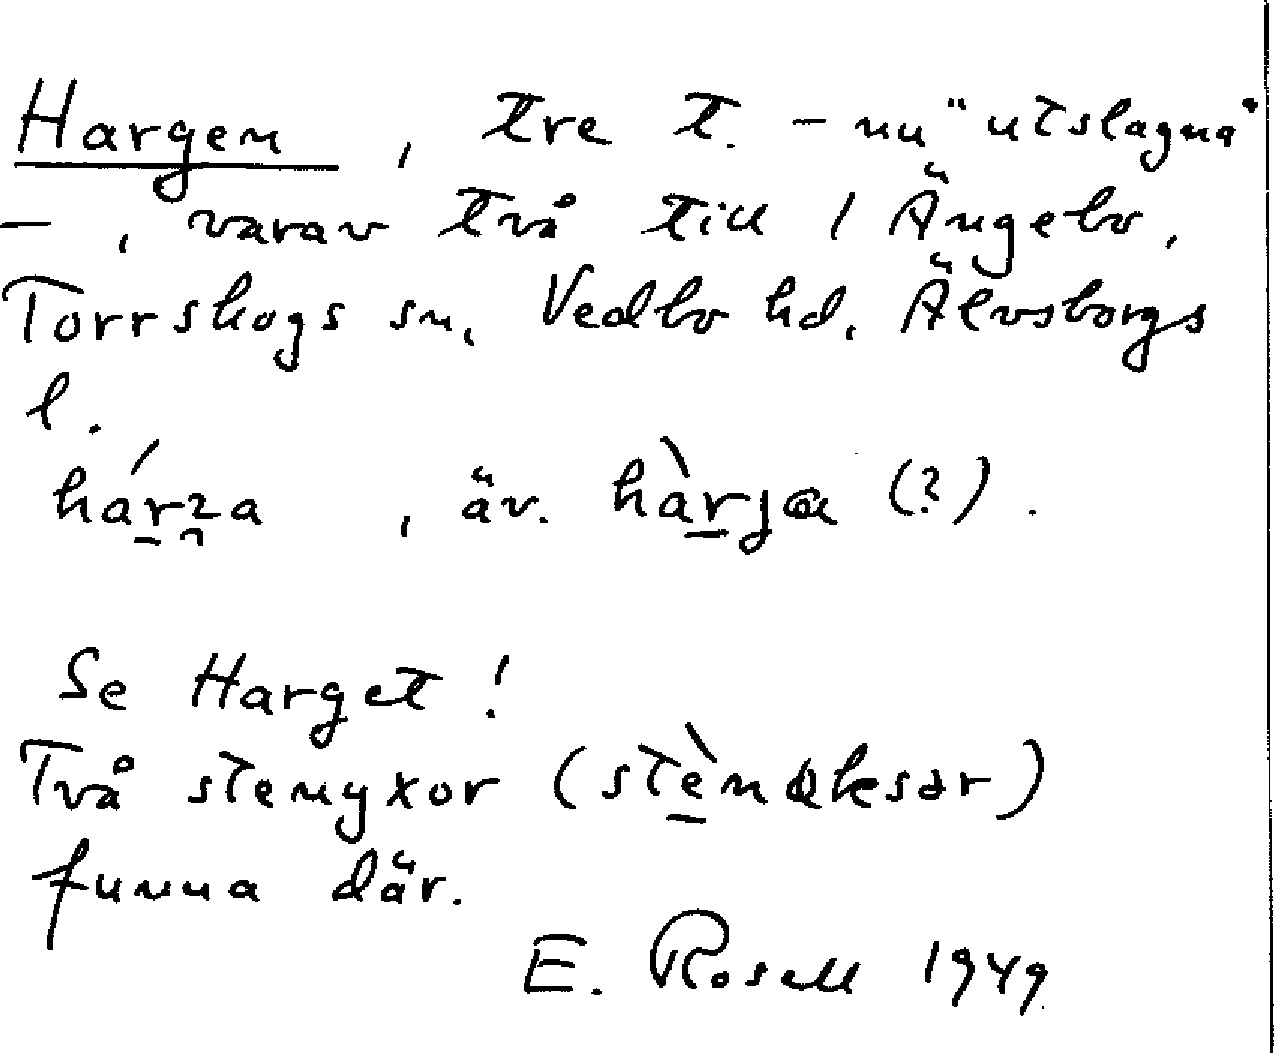 Hargen, tre t. – nu "utslagna"
–, varav två till 1 Ängebo,
Torrskogs sn, Vedbo hd, Älvsborgs
l.
, äv. (?).
Se Harget!
Två stenyxor
funna där.
E. Rosell 1949